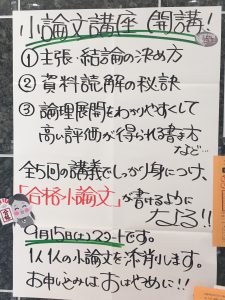 小論文講座 開講!
①主張・結論の決め方
②資料読解の秘訣
③論理展開をわかりやすくして
高い評価が得られる書き方
などなど…
全5回の講義でしっかり身につけ、
「合格小論文」が書けるように
なる!!
9月15日(土)スタートです。
1人1人の小論文を添削します。
お申し込みはおはやめに!!